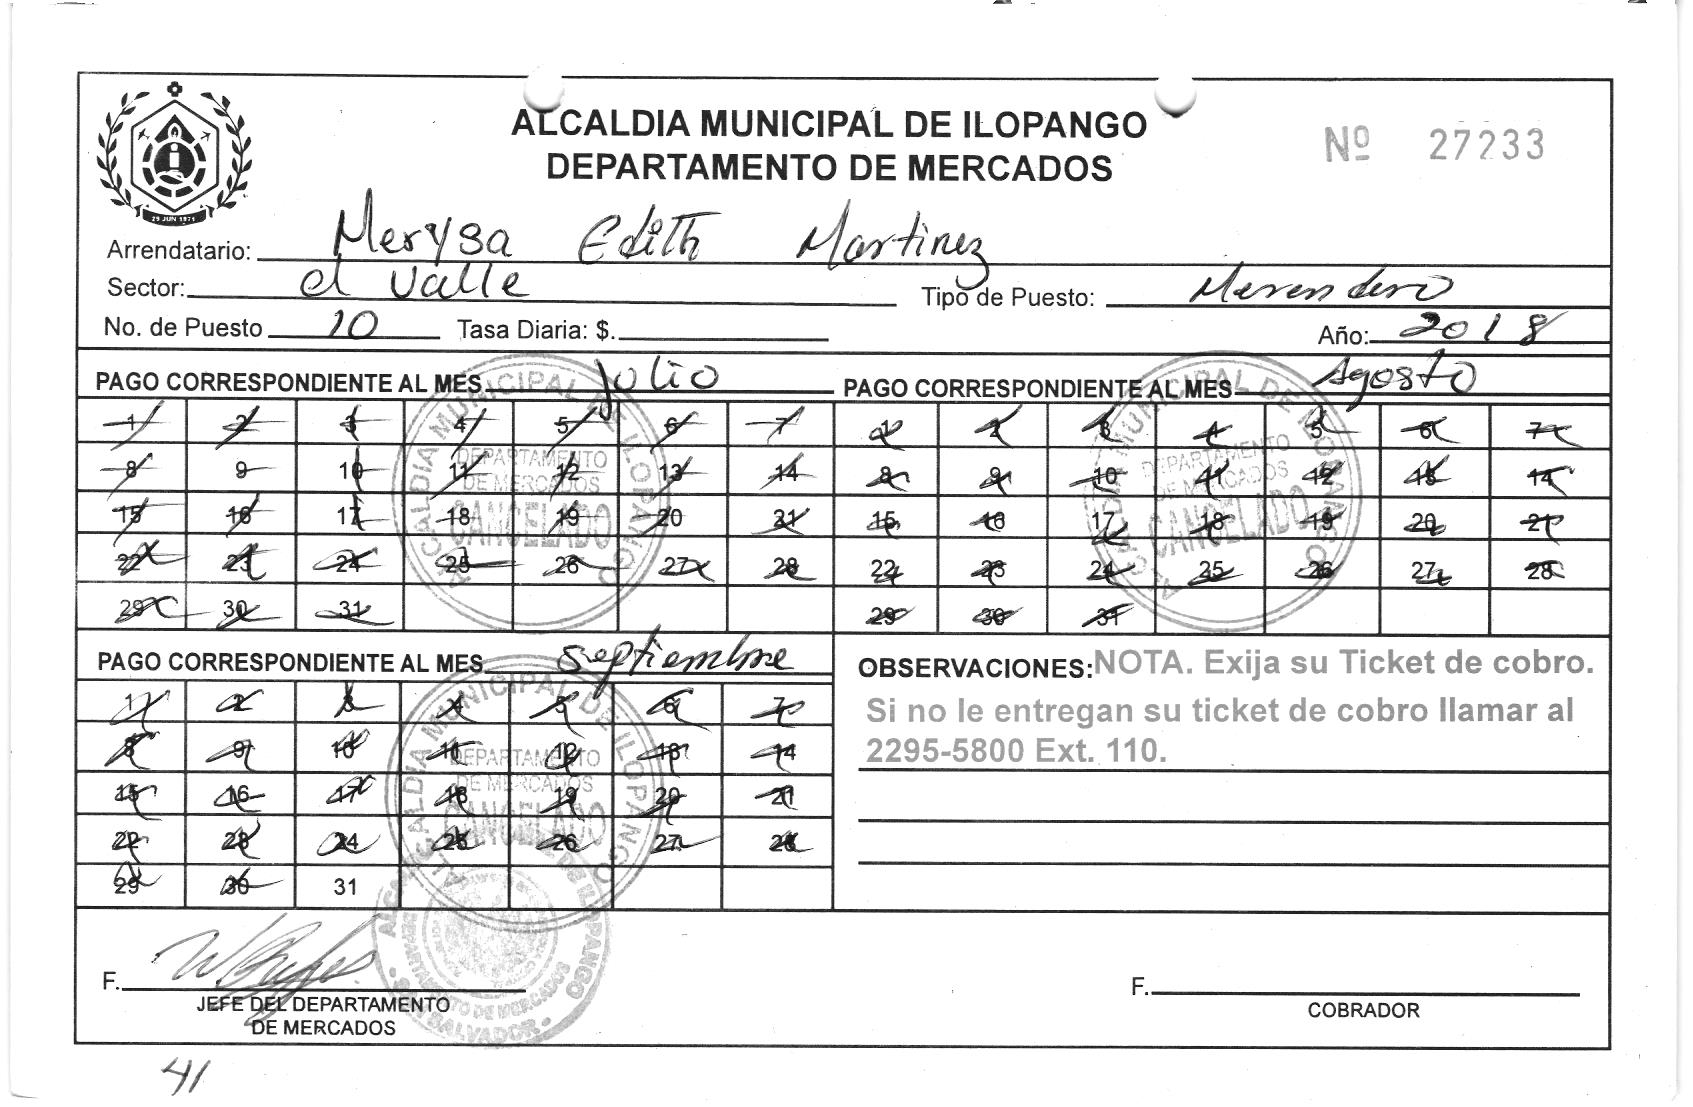 ALCALDIA MUNICIPAL DE ILOPANGO
DEPARTAMENTO DE MERCADOS
Nº 27233
29 JUN 1971
Arrendatario: Merysa Edith Martinez
Sector: el valle Tipo de Puesto: Merendero
No. de Puesto 10 Tasa Diaria: $. Año: 2018
PAGO CORRESPONDIENTE AL MES Julio
1 2 3 4 5 6 7
8 9 10 11 12 13 14
15 16 17 18 19 20 21
22 23 24 25 26 27 28
29 30 31
ALCALDIA MUNICIPAL DE ILOPANGO
DEPARTAMENTO
DE MERCADOS
CANCELADO
PAGO CORRESPONDIENTE AL MES Agosto
1 2 3 4 5 6 7
8 9 10 11 12 13 14
15 16 17 18 19 20 21
22 23 24 25 26 27 28
29 30 31
ALCALDIA MUNICIPAL DE ILOPANGO
DEPARTAMENTO
DE MERCADOS
CANCELADO
PAGO CORRESPONDIENTE AL MES septiembre
1 2 3 4 5 6 7
8 9 10 11 12 13 14
15 16 17 18 19 20 21
22 23 24 25 26 27 28
29 30 31
ALCALDIA MUNICIPAL DE ILOPANGO
DEPARTAMENTO
DE MERCADOS
CANCELADO
OBSERVACIONES: NOTA. Exija su Ticket de cobro.
Si no le entregan su ticket de cobro llamar al
2295-5800 Ext. 110.
F.
JEFE DEL DEPARTAMENTO
DE MERCADOS
ALCALDIA MUNICIPAL DE ILOPANGO
DEPARTAMENTO DE MERCADOS
SAN SALVADOR
F.
COBRADOR
41